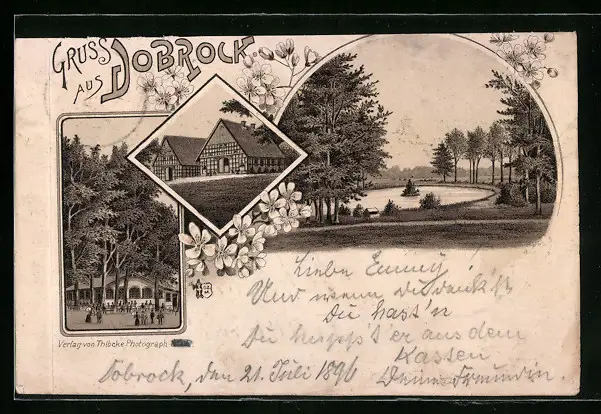 GRUSS
AUS
DOBROCK.
Verlag von Thibcke Photograph
Liebe Emmy!
Und wenn du denkst
Du hast'n
Du er aus dem
Kasten
Dobrock, den 21. Juli 1896 Deine Freundin.